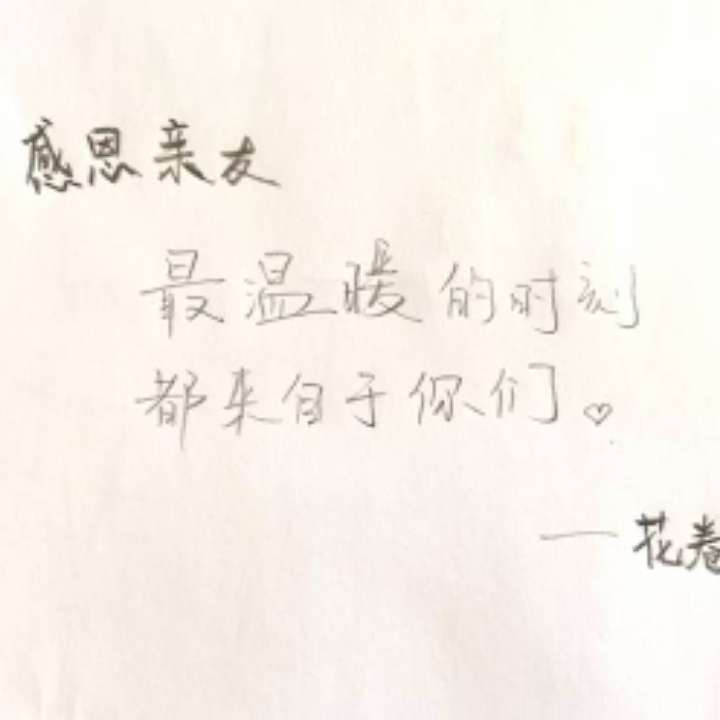 感恩亲友
最温暖的时刻
都来自于你们♡
—花卷